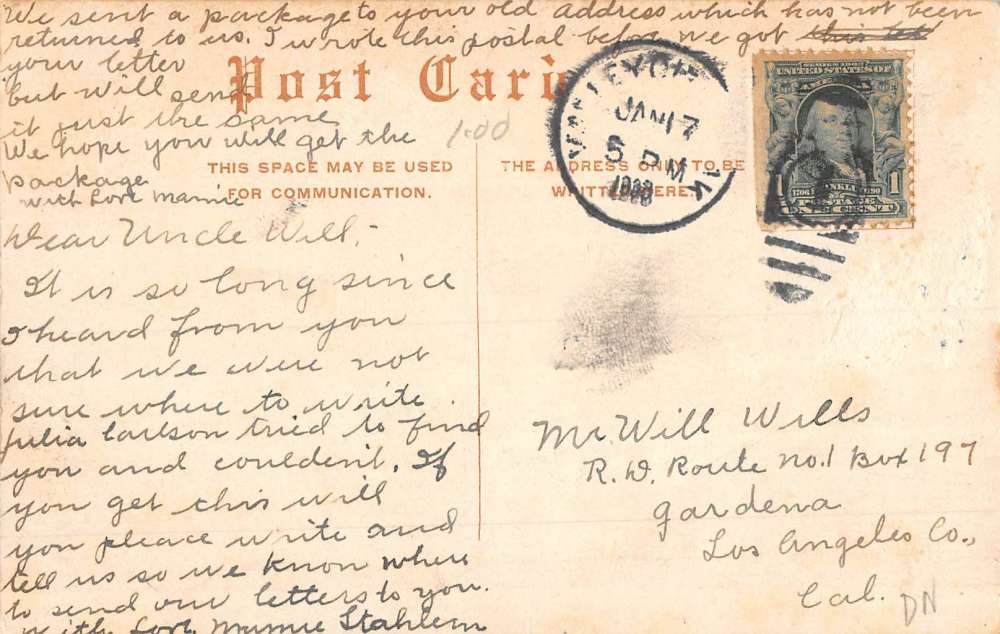 We sent a package to your old address which has not been
returned to us. I wrote this postal before we got
your letter
but will send
it just the same
We hope you will get the
package
with Love Mamie
Post Card
1.00
THIS SPACE MAY BE USED
FOR COMMUNICATION.
THE ADDRESS ONLY TO BE
WRITTEN HERE
JAN 17
5 PM
SERIES 1902
UNITED STATES OF
AMERICA
1706 FRANKLIN 1790
POSTAGE
1 ONE CENT 1
Dear Uncle Will,-
It is so long since
I heard from you
that we were not
sure where to write.
Julia Carlson tried to find
you and couldent. If
you get this will
you pleace write and
tell us so we know where
to send our letters to you.
with Love. Mamie Stahlem
Mr. Will Wills
R.D. Route No.1 Box 197
Gardena
Los Angeles Co.,
Cal.
DN